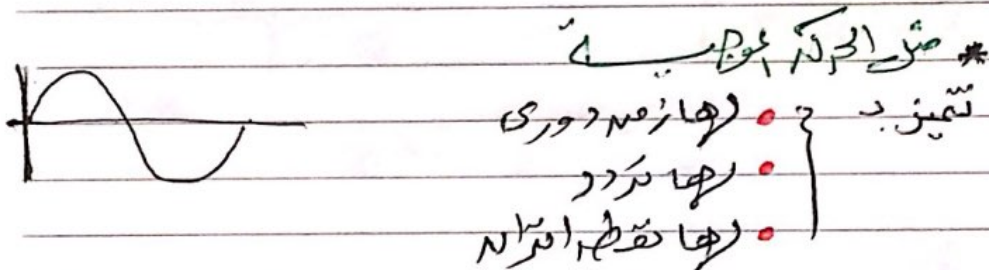 * مثل الحركة الموجية
تتميز بـ
• لها زمن دوري
• لها تردد
• لها نقطة اتزان